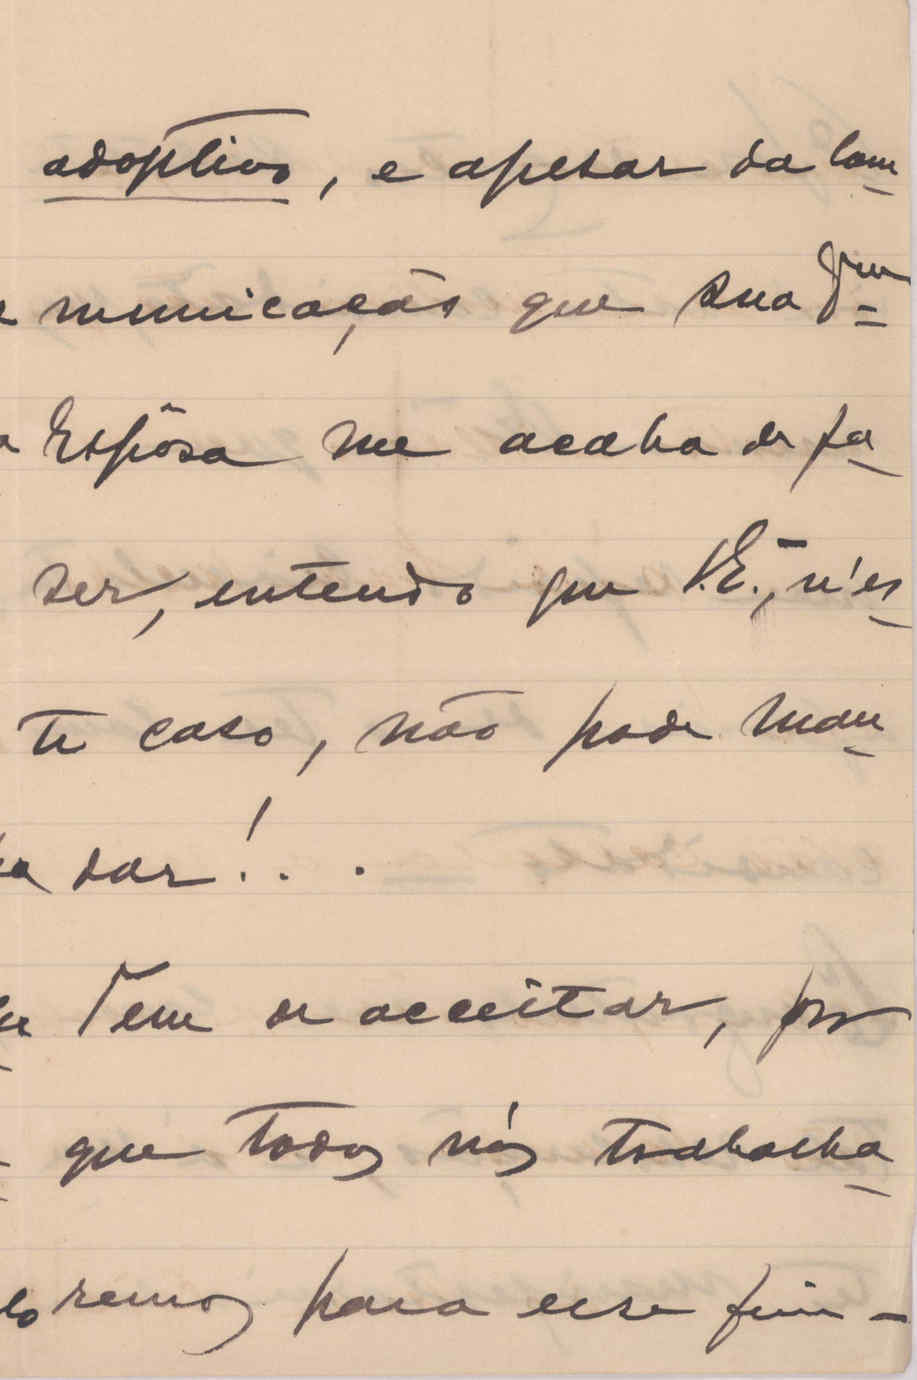 adoptivo, e apesar da com-
municação que sua Exma
Espôsa me acaba de fa-
ser, entendo que V. E., n'es-
te caso, não pode man-
dar!...
Tem de acceitar, por
que todos nós trabalha-
remos para esse fim -